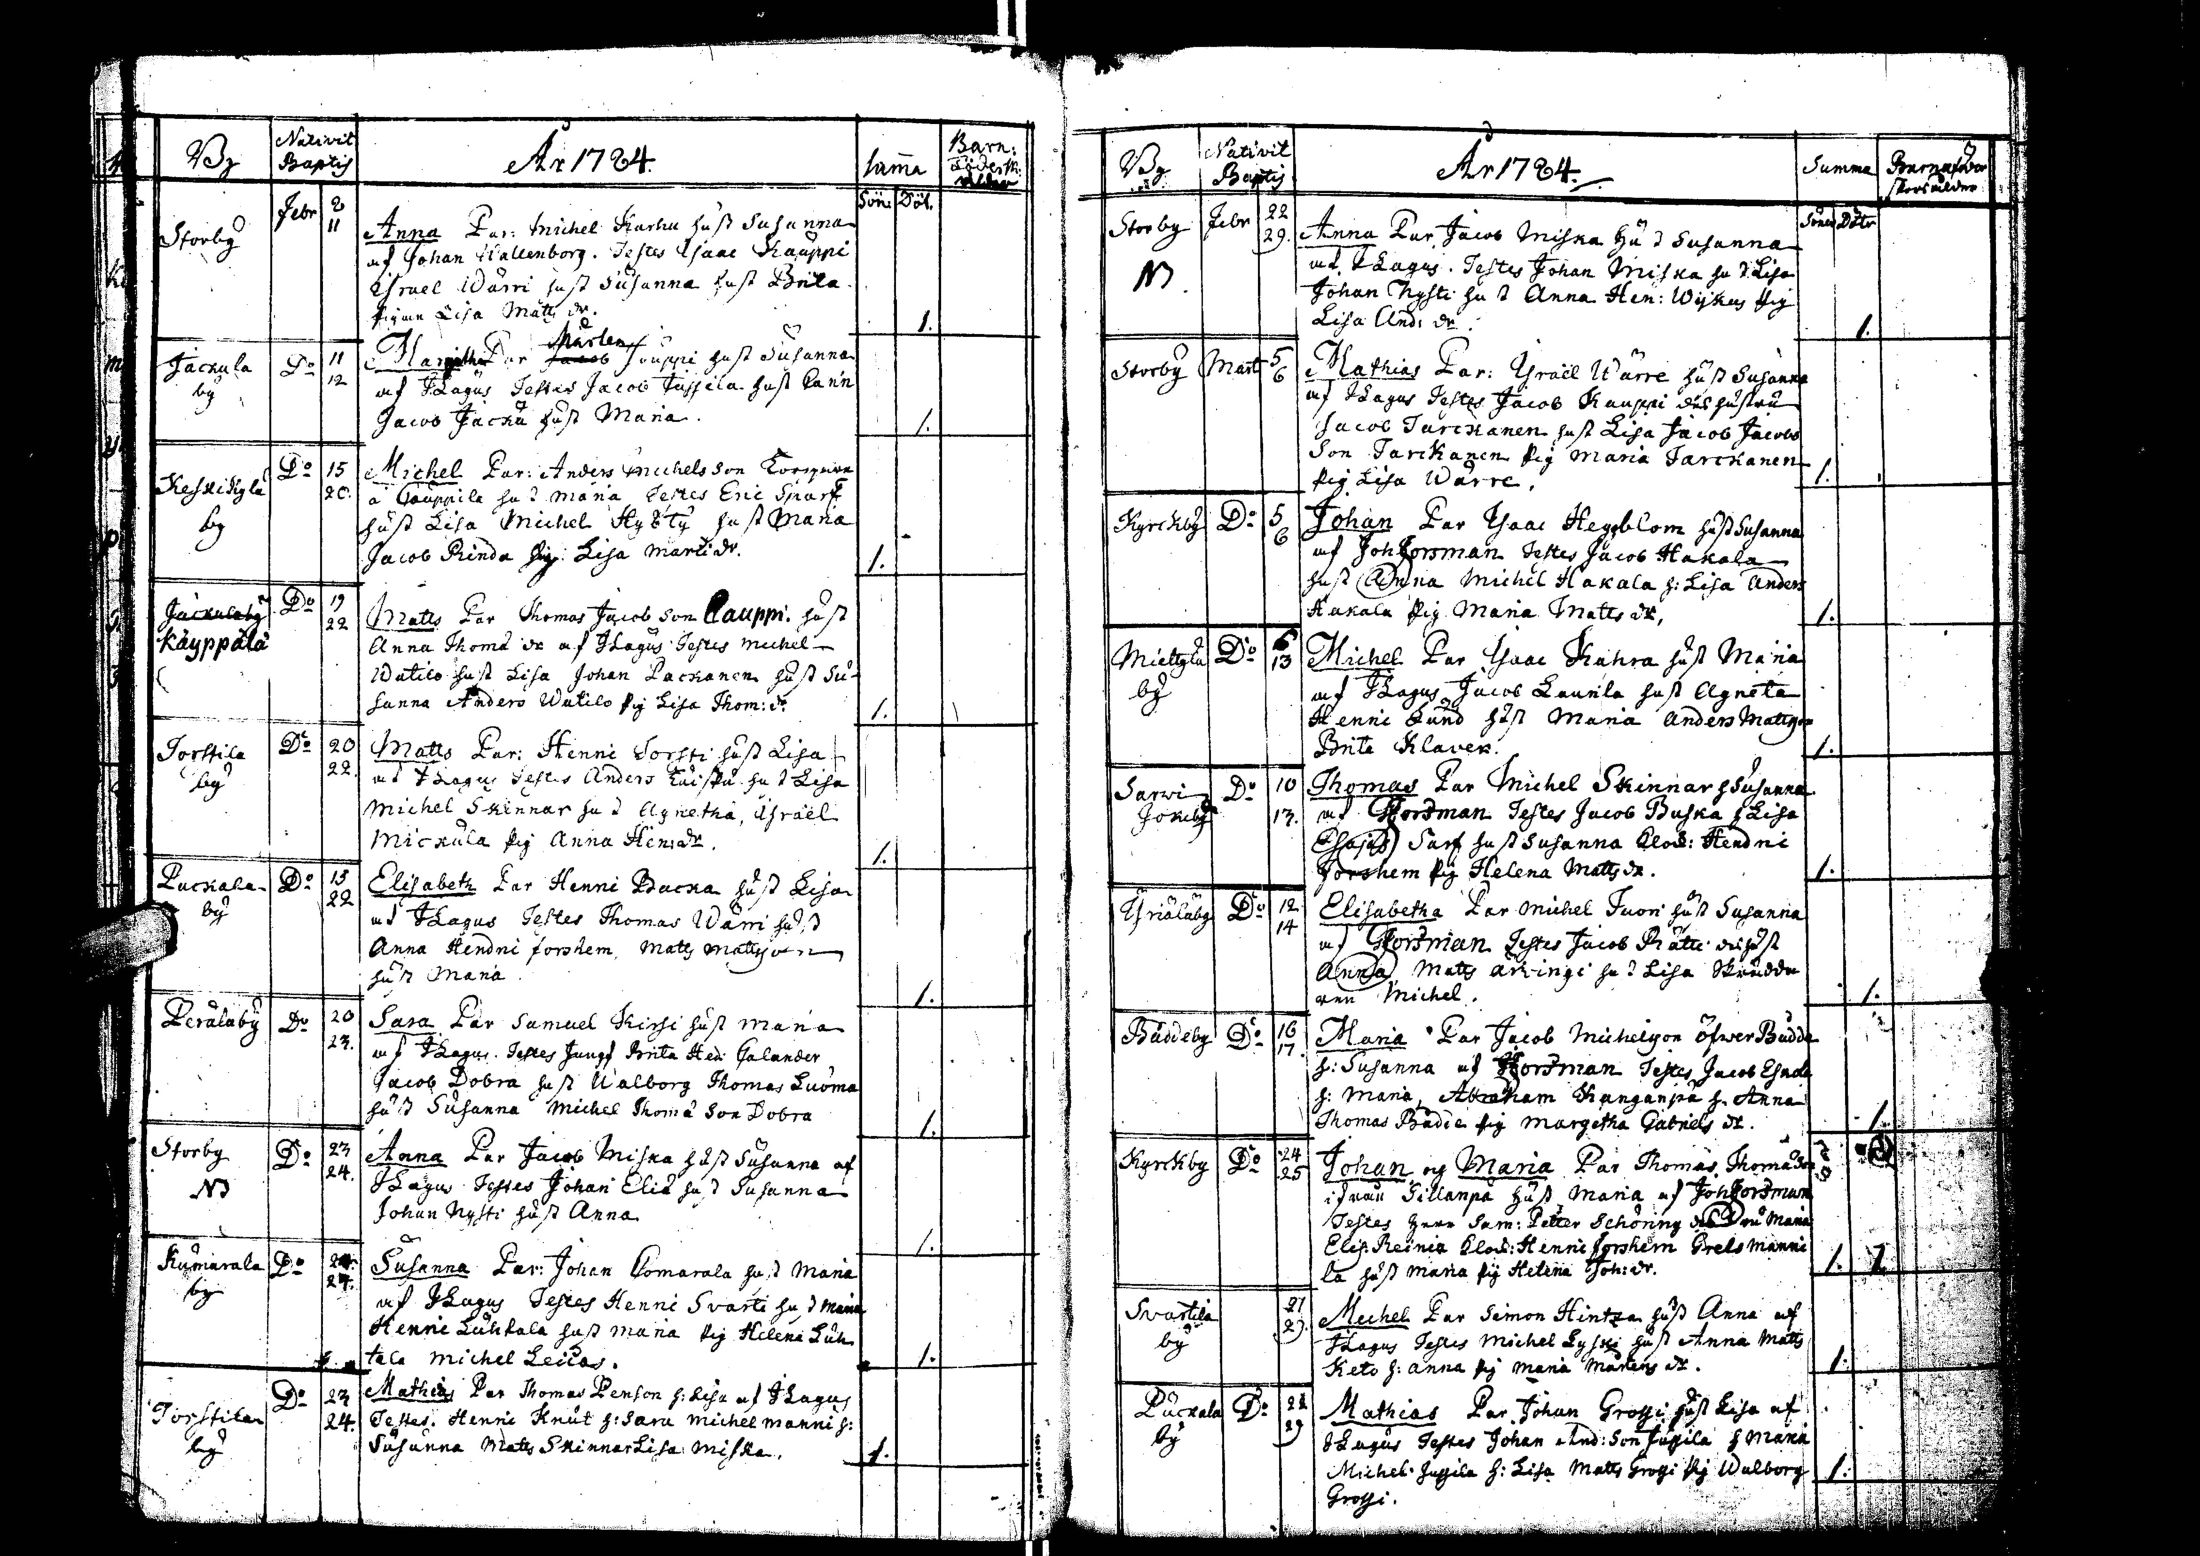 By
Nativit
Baptis
År 1784.
Summa
Barn:
Sön: Döt.
Storby
Febr 8
11
Anna Par: Michel Karhu hust Susanna
af Johan Wallenborg. Testes Isaac Kauppi
Israel Wärri hust Susanna hust Brita
pigan Lisa Matts dr.
1.
Jackula
by
Do 11
12
Margetha Par Mårten Jouppi hust Susanna
af JLagus Testes Jacob Jussila hust Carin
Jacob Jacku hust Maria.
1.
Keskikylä
by
Do 15
20.
Michel Par: Anders Michelsson
à Cauppila hust Maria Testes Eric Sparf
hust Lisa Michel Hysty hust Maria
Jacob Rinda pig: Lisa Marti dr.
1.
Jackulaby
Käyppälä
Do 19
22
Matts Par Thomas Jacobson Cauppi. hust
Anna Thoma dr af JLagus Testes Michel
Watilo hust Lisa Johan Packanen hust Su-
sanna Anders Watilo pig Lisa Thom: dr
1.
Torstila
by
Do 20
22.
Matts Par: Henni Torsti hust Lisa
af JLagus Testes Anders hust Lisa
Michel Skinnar hust Agnetha, Israel
Mickula pig Anna Hens dr.
1.
Packala
by
Do 15
22
Elisabeth Par Henni Packa hust Lisa
af JLagus Testes Thomas Wärri hust
Anna Hendni Forshem, Matts Mattsson
hust Maria
1.
Peräläby
Do 20
23.
Sara Par Samuel Kirsi hust Maria
af JLagus. Testes Jungf Brita Hed: Calander
Jacob Dobra hust Walborg Thomas Luoma
hust Susanna Michel Thomä Son Dobra
1.
Storby
Do 23
24.
Anna Par Jacob Miska hust Susanna af
JLagus Testes Johan Elia hust Susanna
Johan Nysti hust Anna
1.
Kumarala
by
Do 24.
27.
Susanna Par: Johan Comarala hust Maria
af JLagus Testes Henni Svarti hust Maria
Henni Luhtala hust Maria pig Helena Luh
tala Michel
1.
Torstila
by
Do 23
24.
Mathias Par Thomas Penson h: Lisa af JLagus
Testes. Henni Knut h: Sara Michel Manni h:
Susanna Matts Skinnar Lisa Miska.
1.
By
Nativit
Baptis
År 1784.
Summa
Söner Döttr
Storby
Febr 22
29.
Anna Par Jacob Miska hust Susanna
af JLagus. Testes Johan Miska hust Lisa
Johan Nysti hust Anna Hen: Wiskus pig
Lisa And: dr.
1.
Storby
Mart 5
6
Mathias Par: Israël Wärre hust Susanna
af JLagus Testes Jacob Kauppi des hustru
Jacob Tarckanen hust Lisa Jacob Jacobs
Son Tarckanen pig Maria Tarckanen
pig Lisa Wärre.
1.
Kyrckby
Do 5
6
Johan Par Isaac Heggblom hust Susanna
af Joh Forsman Testes Jacob Hakala
hust Anna Michel Hakala h: Lisa Anders
Hakala pig Maria Matts dr.
1.
Miettylä
by
Do 6
13
Michel Par Isaac Kahra hust Maria
af JLagus Jacob Laurila hust Agneta
Henni Lund hust Maria Anders Mattsson
Brita Klaver.
1.
Sarvi
Jokiby
Do 10
13.
Thomas Par Michel Skinnar h Susanna
af Forsman Testes Jacob Buska h Lisa
Esajas Sarf hust Susanna Clock: Hendni
Forshem pig Helena Matts dr.
1.
Yriäläby
Do 12
14
Elisabetha Par Michel Juori hust Susanna
af Forsman Testes Jacob Rätti des hust
Anna Matts Äkinge hust Lisa Skrädda
ren Michel.
1.
Buddeby
Do 16
17.
Maria Par Jacob Michelsson öfwer Budda
h: Susanna af Forsman Testes Jacob
h: Maria, Abraham Kanganpä h. Anna
Thomas Budda pig Margetha Gabriels dr.
1.
Kyrckby
Do 24
25
Johan og Maria Par Thomas Thomäson
Tillanpä hust Maria af Joh Forsman
Testes Herr Sam: Petter Schöning des Fru Maria
Elis: Reinia Clock: Henni Forshem Grels Manni
la hust Maria pig Helena Joh: dr.
1. 1.
Svartila
by
27
29.
Michel Par Simon Hintza hust Anna af
JLagus Testes Michel Lyski hust Anna Matts
Keto h: Anna pig Maria Mårtens dr.
1.
Puckala
by
Do 28
29
Mathias Par Johan Grossi hust Lisa af
JLagus Testes Johan And: Son Jussila h Maria
Michel Jussila h: Lisa Matts Grossi pig Walborg
Grossi.
1.